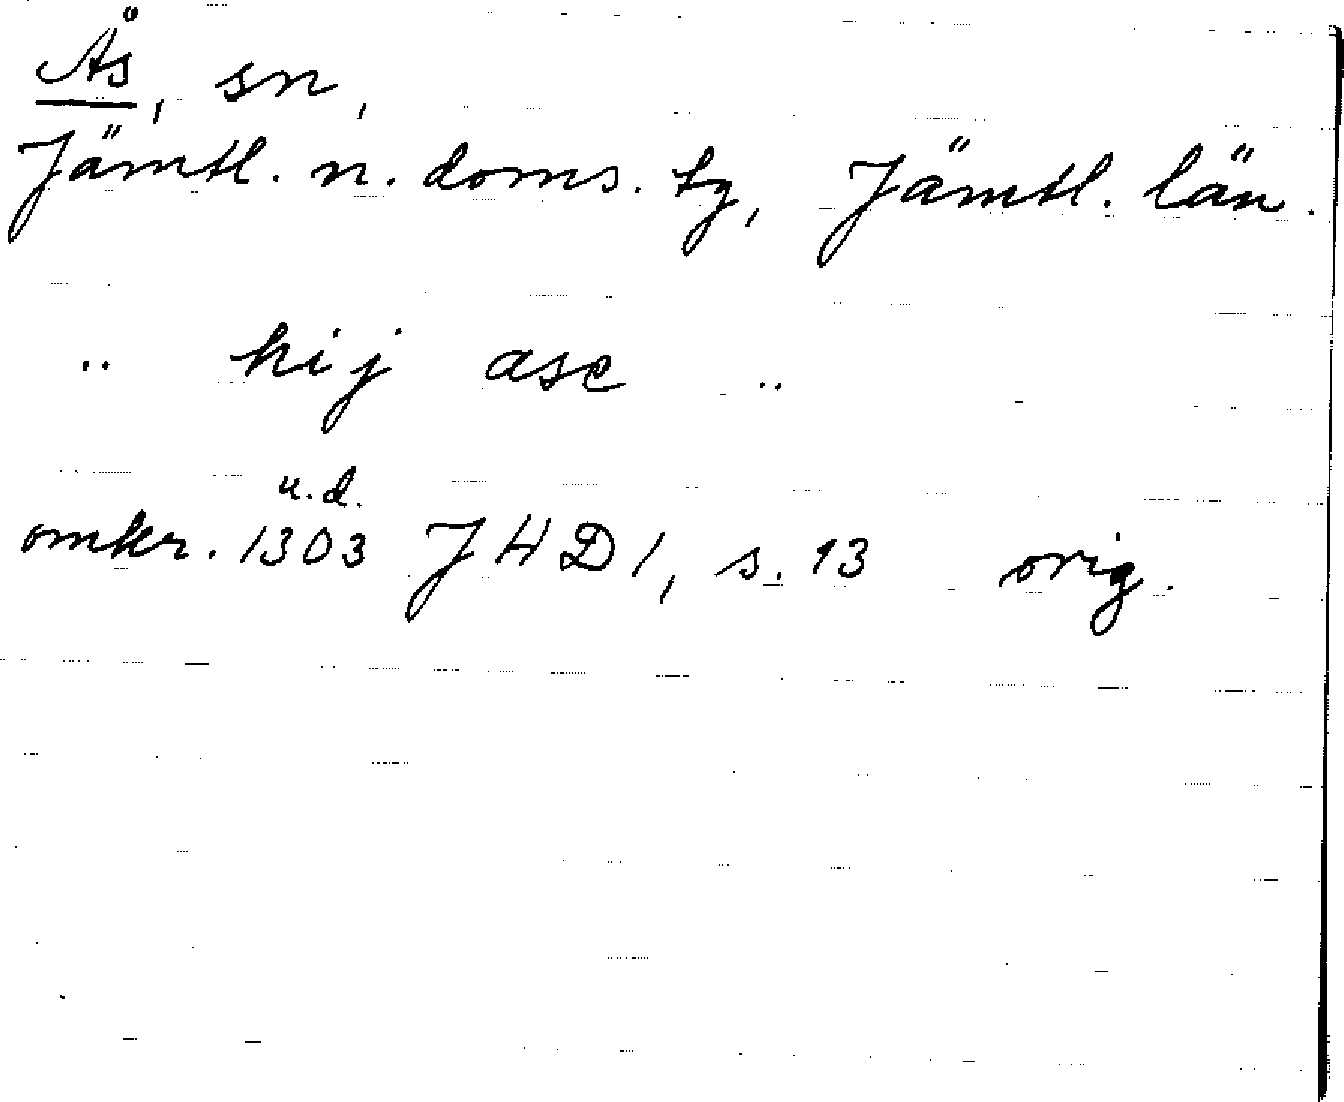 Ås, sn,
Jämtl. n. doms. tg, Jämtl. län.
.. hij ase ..
u.d.
omkr. 1303 JHD1, s. 13 orig.